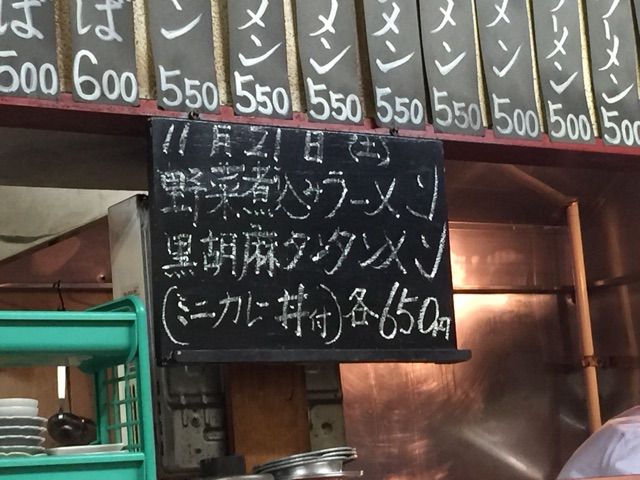 ば
500
ば
600
ン
550
メン
550
メン
550
メン
550
メン
550
メン
500
ーメン
500
ーメン
500
11月21日(土)
野菜煮込みラーメン
黒胡麻タンタンメン
(ミニカレー丼付)各650円